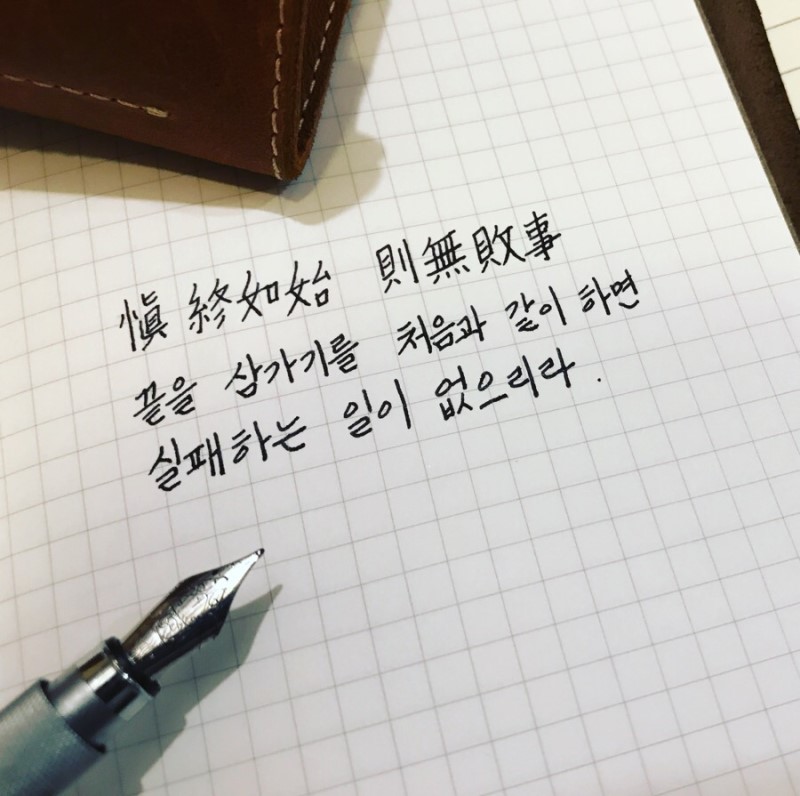 愼終如始 則無敗事
끝을 삼가기를 처음과 같이 하면
실패하는 일이 없으리라.